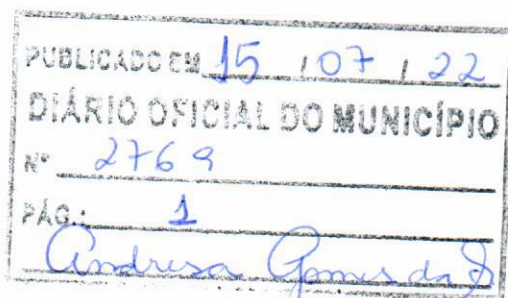 PUBLICADO EM 15 / 07 / 22
DIÁRIO OFICIAL DO MUNICÍPIO
Nº 2769
PÁG.: 1
Andresa Gomes da S